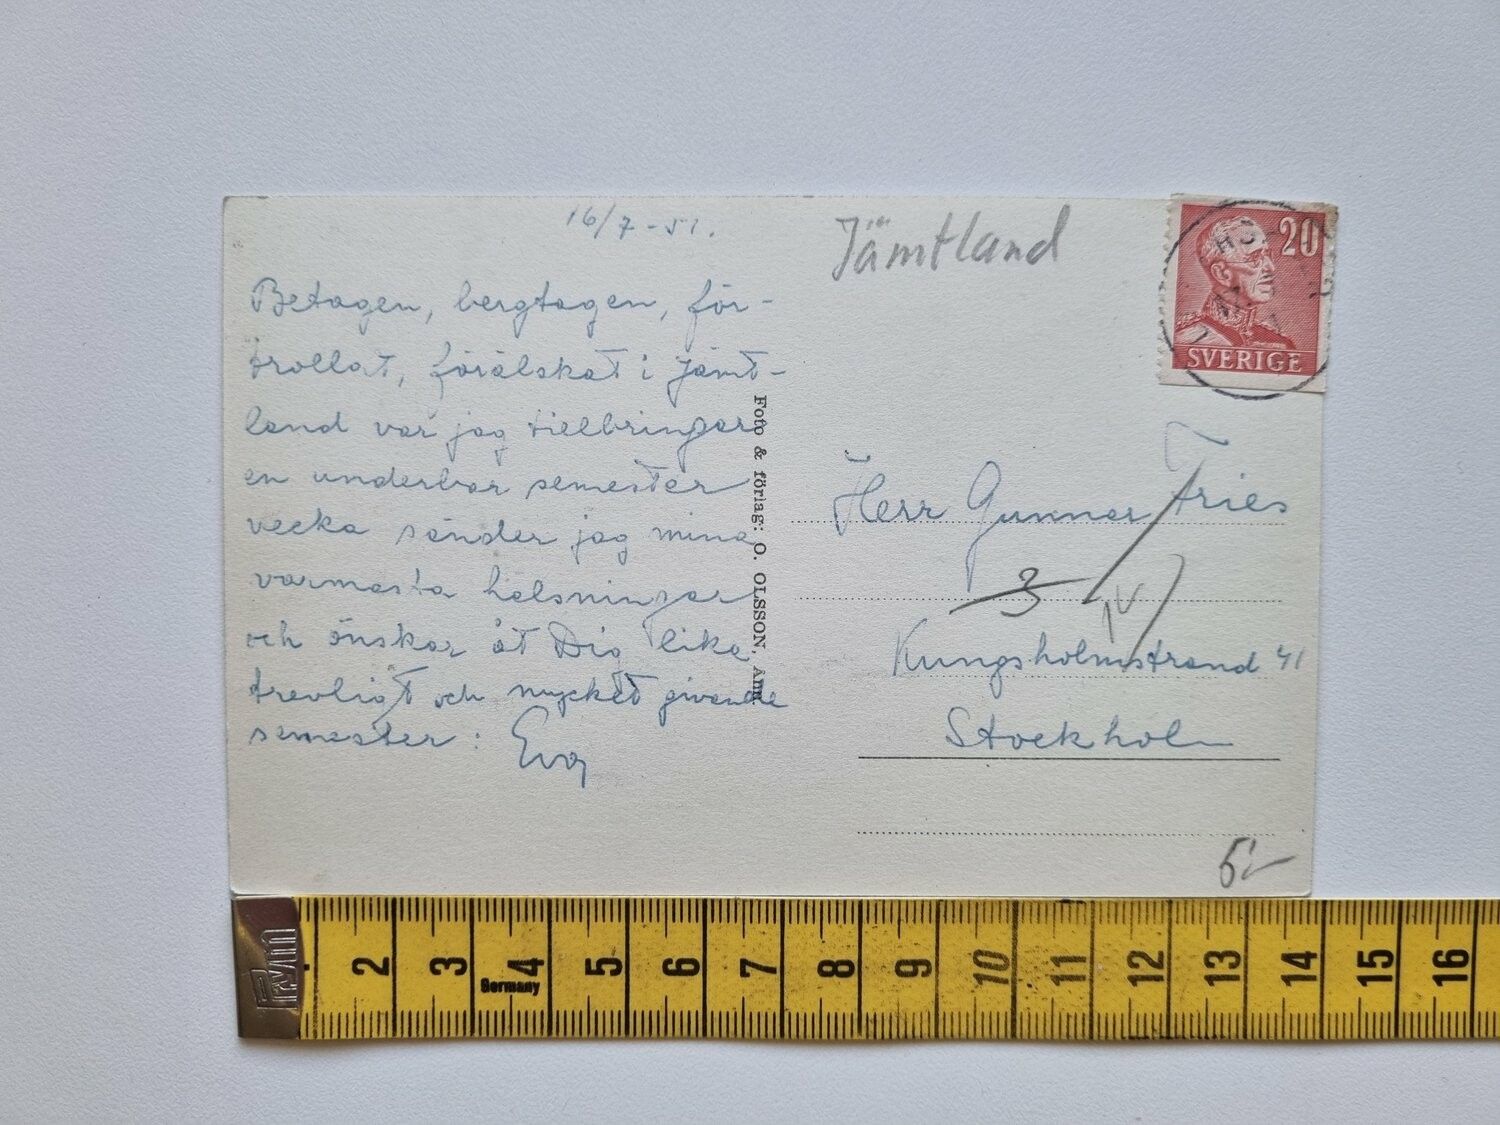 16/7-51.
Betagen, bergtagen, för-
trollat, förälskat i Jämt-
land var jag tillbringar
en underbar semester
vecka sänder jag mina
varmaste hälsningar
och önskar åt Dig lika
trevligt och mycket givande
semester: Eva
Foto & förlag: O. OLSSON, Ånn.
Jämtland
20
SVERIGE
Herr Gunnar Fries
3
Kungsholmstrand 41
Stockholm
5:-
Germany
2 3 4 5 6 7 8 9 10 11 12 13 14 15 16